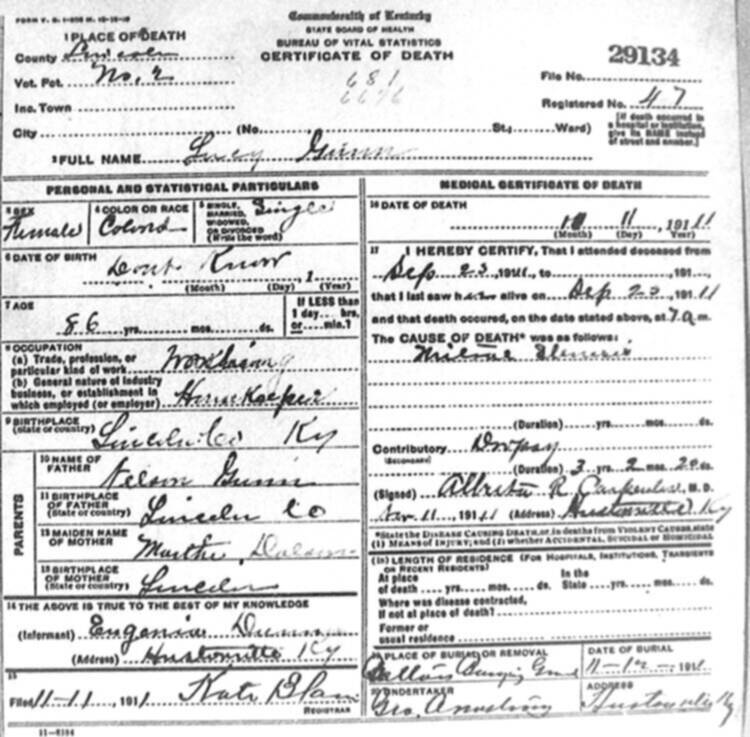 FORM V. S. 1
Commonwealth of Kentucky
STATE BOARD OF HEALTH
BUREAU OF VITAL STATISTICS
CERTIFICATE OF DEATH
29134
1 PLACE OF DEATH
County Lincoln
Vot. Pct. No. 2
Inc. Town
City (No. St.; Ward)
681
File No.
Registered No. 47
[If death occurred in a hospital or institution, give its NAME instead of street and number.]
2 FULL NAME Lucy Gunn
PERSONAL AND STATISTICAL PARTICULARS
3 SEX Female
4 COLOR OR RACE Colored
5 SINGLE, MARRIED, WIDOWED, OR DIVORCED (Write the word) Single
6 DATE OF BIRTH
Dont Know, 1
(Month) (Day) (Year)
7 AGE
86 yrs. mos. ds.
If LESS than 1 day.... hrs. or.... min.?
8 OCCUPATION
(a) Trade, profession, or particular kind of work
(b) General nature of industry business, or establishment in which employed (or employer) Housekeeper
9 BIRTHPLACE (State or country) Lincoln Co Ky
PARENTS
10 NAME OF FATHER Nelson Gunn
11 BIRTHPLACE OF FATHER (State or country) Lincoln Co
12 MAIDEN NAME OF MOTHER Martha
13 BIRTHPLACE OF MOTHER (State or country) Lincoln
14 THE ABOVE IS TRUE TO THE BEST OF MY KNOWLEDGE
(Informant) Eugenia
(Address) Hustonville Ky
15
Filed 11-11, 1911 Kate
REGISTRAR
MEDICAL CERTIFICATE OF DEATH
16 DATE OF DEATH
11 1911
(Month) (Day) (Year)
17 I HEREBY CERTIFY, That I attended deceased from
Sep 23 1911, to 191
that I last saw her alive on Sep 23 1911
and that death occurred, on the date stated above, at 7 a m.
The CAUSE OF DEATH* was as follows:
(Duration) yrs. mos. ds.
Contributory Dropsy
(SECONDARY)
(Duration) 3 yrs. 2 mos. 20 ds.
(Signed) R Carpenter, M. D.
Nov. 11, 1911 (Address) Hustonville Ky
*State the DISEASE CAUSING DEATH, or, in deaths from VIOLENT CAUSES, state (1) MEANS OF INJURY; and (2) whether ACCIDENTAL, SUICIDAL or HOMICIDAL
18 LENGTH OF RESIDENCE (FOR HOSPITALS, INSTITUTIONS, TRANSIENTS OR RECENT RESIDENTS)
At place of death yrs. mos. ds.
In the State yrs. mos. ds.
Where was disease contracted, if not at place of death?
Former or usual residence
19 PLACE OF BURIAL OR REMOVAL
DATE OF BURIAL
11-12-1911
20 UNDERTAKER
Geo.
ADDRESS
Hustonville Ky